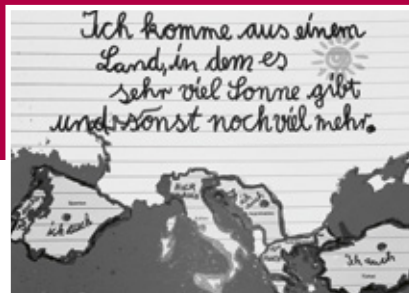 Ich komme aus einem
Land, in dem es
sehr viel Sonne gibt
und sonst noch viel mehr.
ich auch
Ich auch